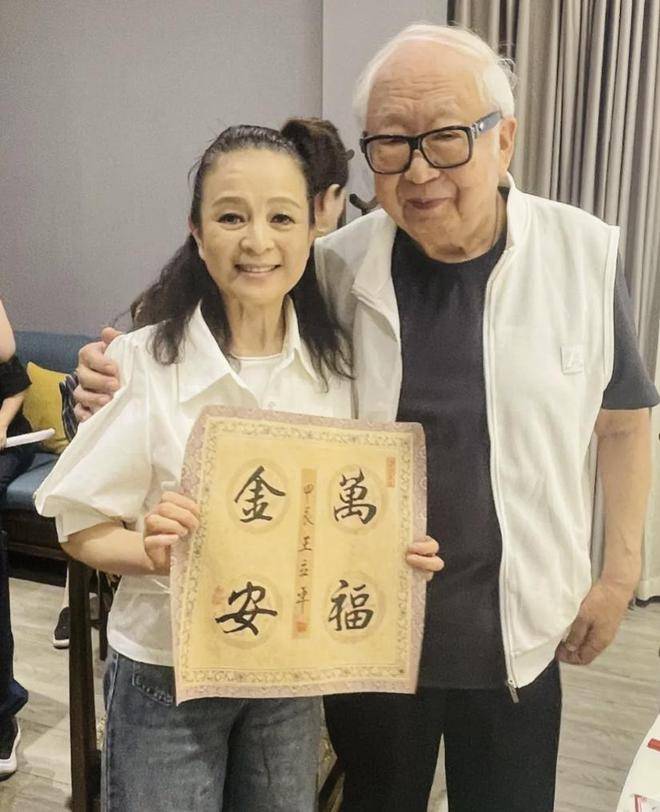 萬福
金安
甲辰王立平